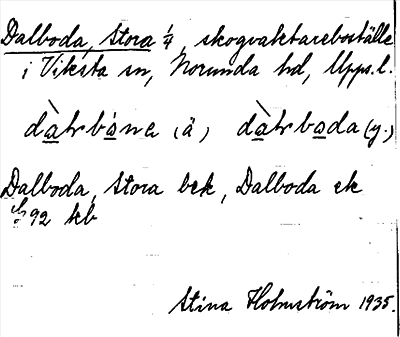 Dalboda, Stora 1/4, skogvaktareboställe
i Viksta sn, Norunda hd, Upps. l.
dàbrbòna (ä) dàbrboda (y.)
Dalboda, Stora bek, Dalboda ek
92 kb
Stina Holmström 1935.